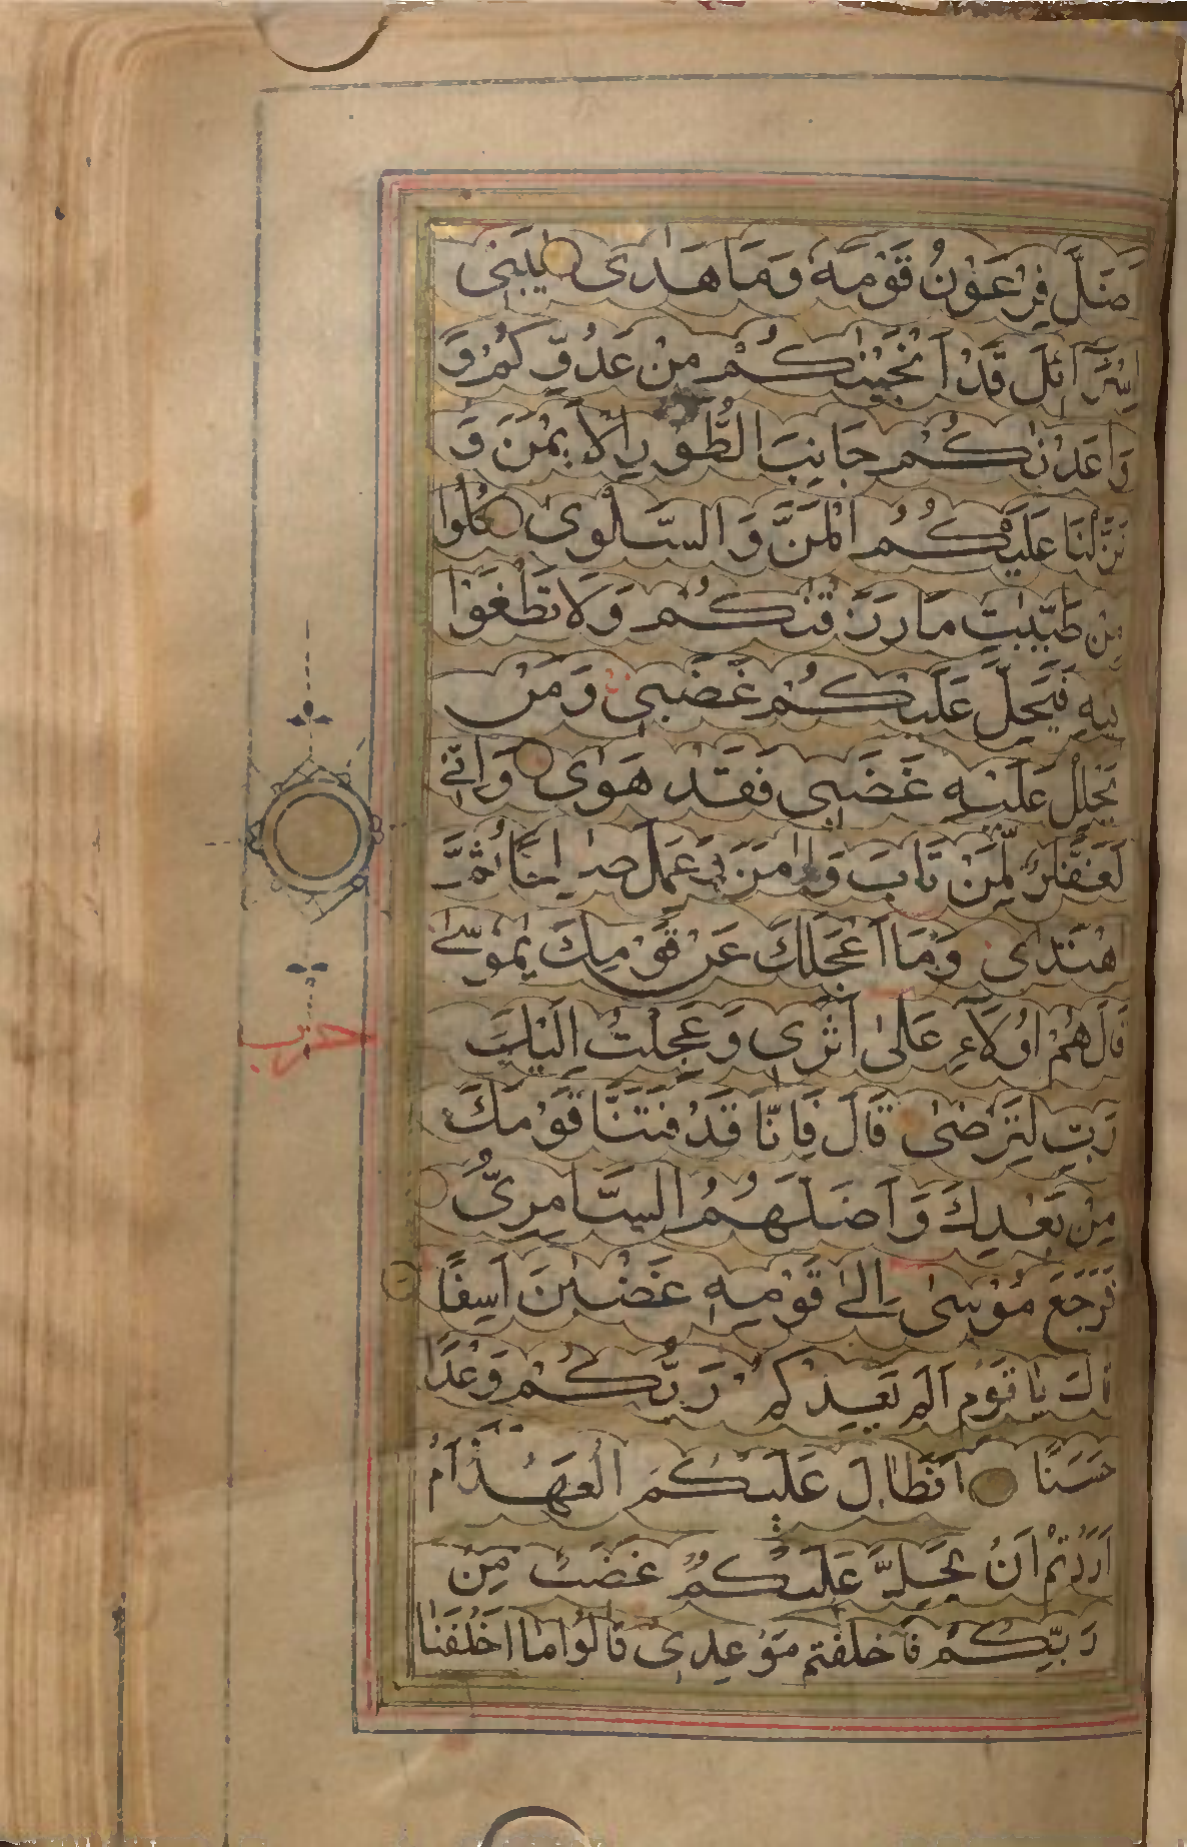 ضَلَّ فِرْعَوْنُ قَوْمَهٗ وَمَا هَدٰى يٰبَنِىْ
اِسْرَآئِلَ قَدْ اَنْجَيْنٰكُمْ مِنْ عَدُوِّكُمْ وَ
وَاعَدْنٰكُمْ جَانِبَ الطُّوْرِ الْاَيْمَنَ وَ
نَزَّلْنَا عَلَيْكُمُ الْمَنَّ وَالسَّلْوٰى كُلُوْا
مِنْ طَيِّبٰتِ مَا رَزَقْنٰكُمْ وَلَا تَطْغَوْا
فِيْهِ فَيَحِلَّ عَلَيْكُمْ غَضَبِىْ وَمَنْ
يَحْلِلْ عَلَيْهِ غَضَبِىْ فَقَدْ هَوٰى وَاِنِّىْ
لَغَفَّارٌ لِّمَنْ تَابَ وَاٰمَنَ وَعَمِلَ صَالِحًا ثُمَّ
اهْتَدٰى وَمَا اَعْجَلَكَ عَنْ قَوْمِكَ يٰمُوْسٰى
قَالَ هُمْ اُولَآءِ عَلٰى اَثَرِىْ وَعَجِلْتُ اِلَيْكَ
رَبِّ لِتَرْضٰى قَالَ فَاِنَّا قَدْ فَتَنَّا قَوْمَكَ
مِنْ بَعْدِكَ وَاَضَلَّهُمُ السَّامِرِىُّ
فَرَجَعَ مُوْسٰى اِلٰى قَوْمِهٖ غَضْبٰنَ اَسِفًا
قَالَ يَاقَوْمِ اَلَمْ يَعِدْكُمْ رَبُّكُمْ وَعْدًا
حَسَنًا اَفَطَالَ عَلَيْكُمُ الْعَهْدُ اَمْ
اَرَدْتُّمْ اَنْ يَّحِلَّ عَلَيْكُمْ غَضَبٌ مِنْ
رَبِّكُمْ فَاَخْلَفْتُمْ مَوْعِدِىْ قَالُوْا مَا اَخْلَفْنَا
حزب